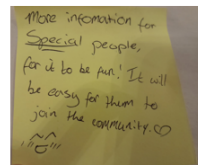 More infomation for
Special people,
for it to be fun! It will
be easy for them to
join the community.♡